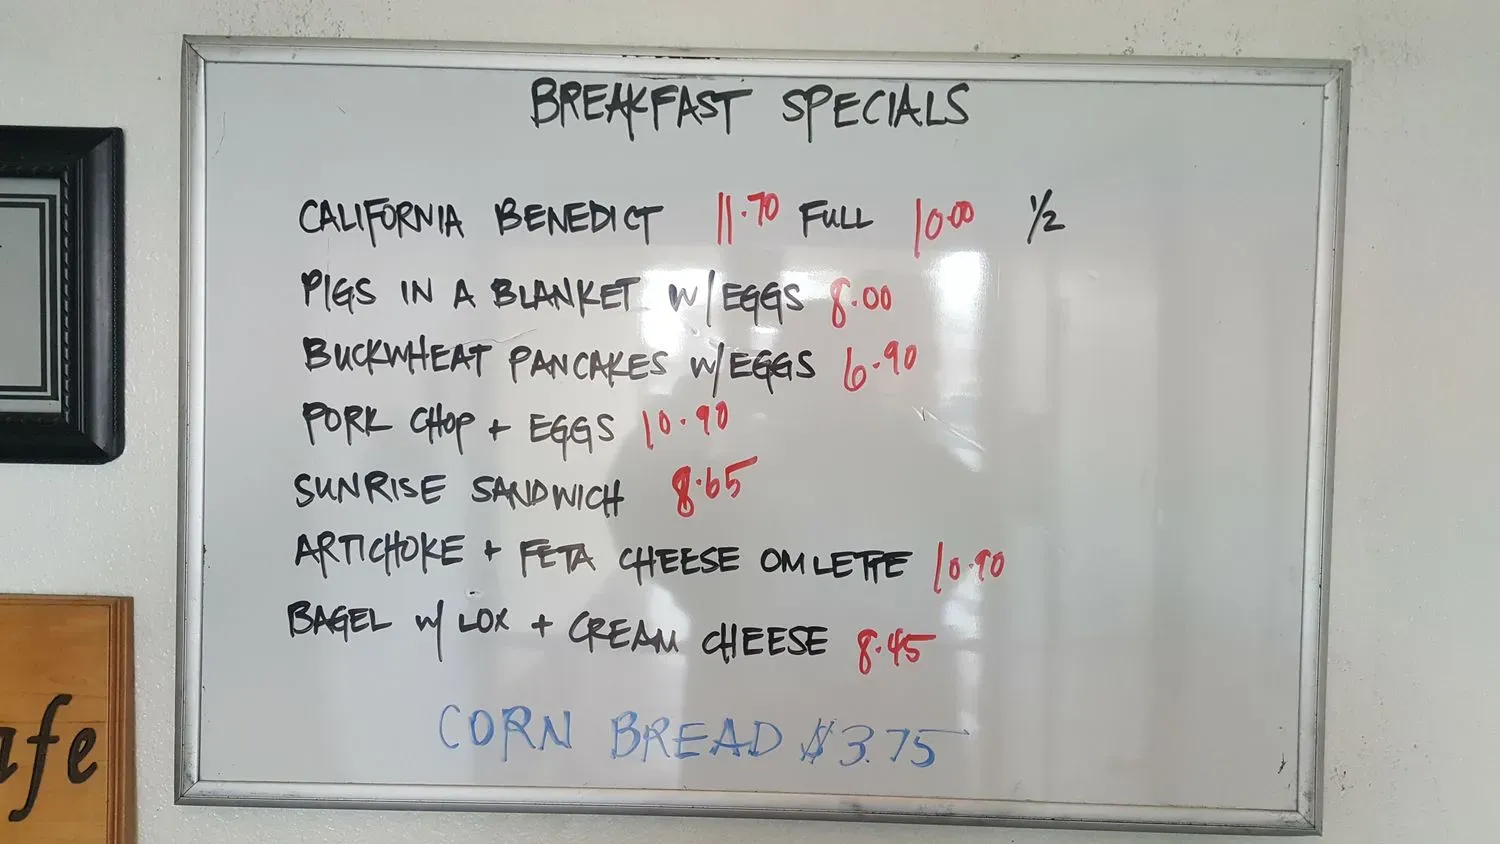 BREAKFAST SPECIALS
CALIFORNIA BENEDICT 11.70 FULL 10.00 1/2
PIGS IN A BLANKET W/EGGS 8.00
BUCKWHEAT PANCAKES W/EGGS 6.90
PORK CHOP + EGGS 10.90
SUNRISE SANDWICH 8.65
ARTICHOKE + FETA CHEESE OMLETTE 10.90
BAGEL W/ LOX + CREAM CHEESE 8.45
CORN BREAD $3.75
afe